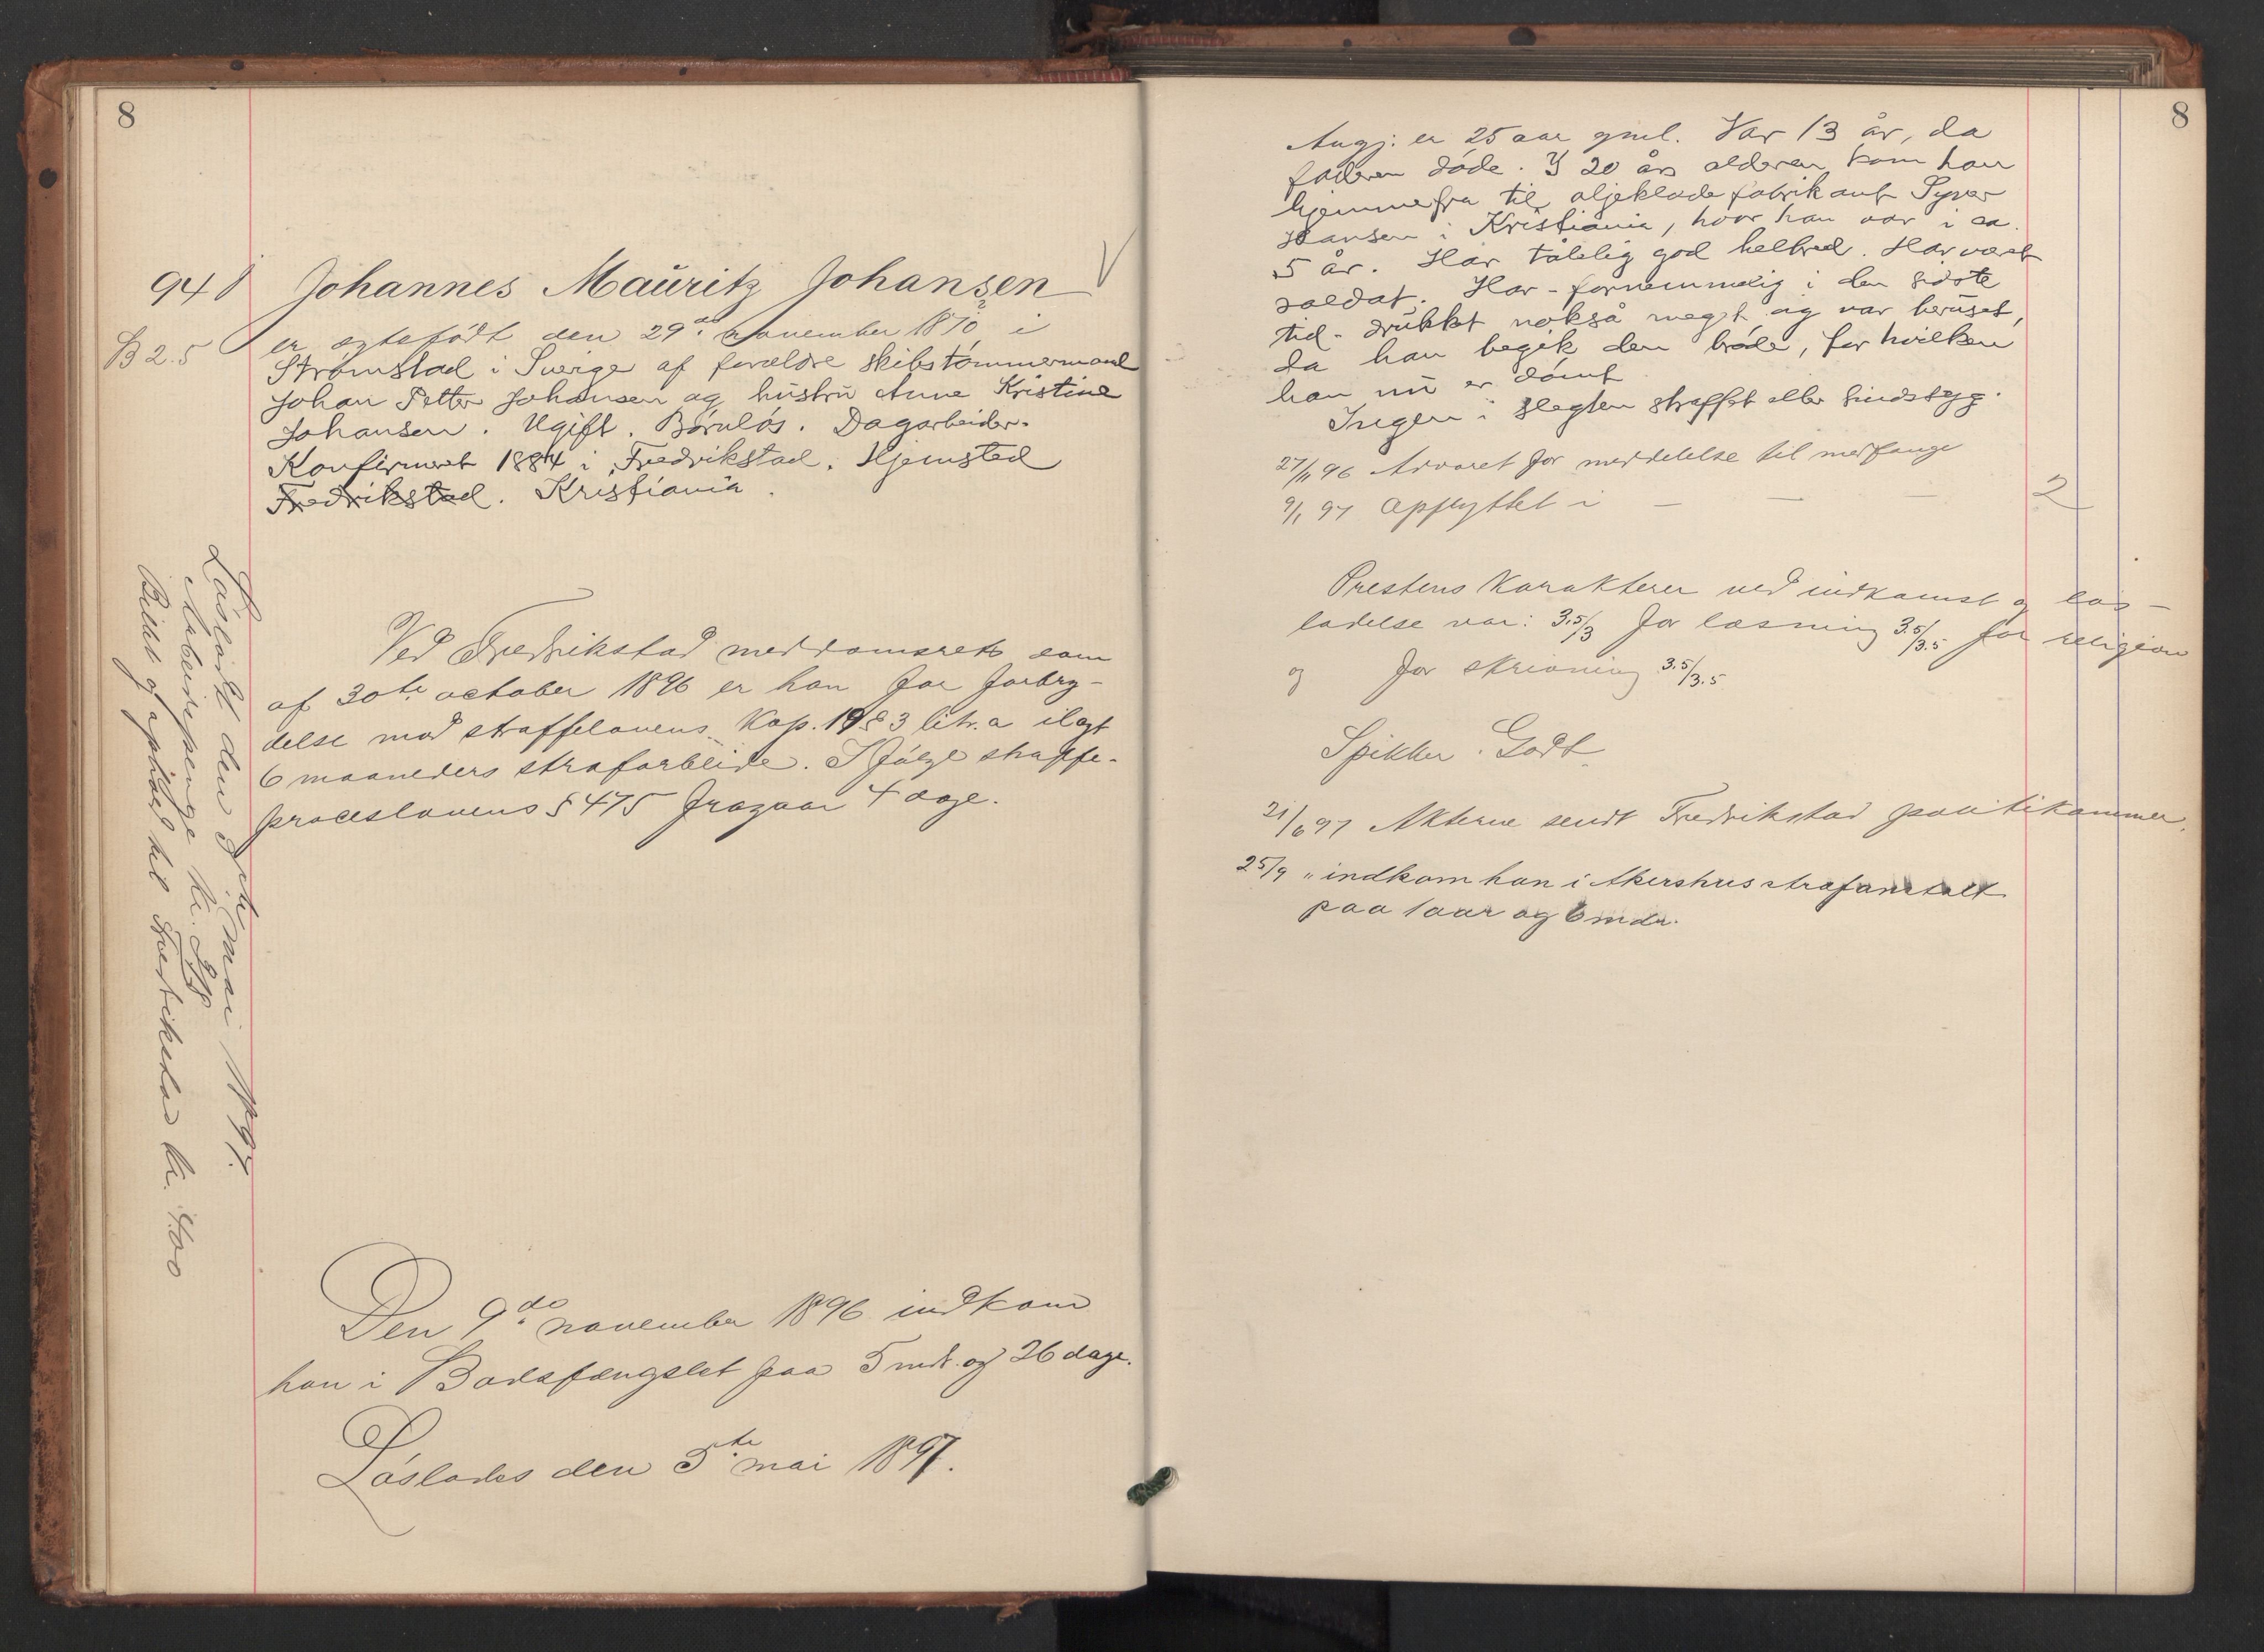 8
94
Johannes Mauritz Johansen
B 2.5
er egtefødt den 29de november 1870 i
Strømstad i Sverige af forældre skibstømmermand
Johan Petter Johansen og hustru Anne Kristine
Johansen. Ugift. Børnløs. Dagarbeider.
Konfirmeret 1884 i Fredrikstad. Hjemsted
Fredrikstad. Kristiania.
Ved Fredrikstad meddomsrets dom
af 30te october 1896 er han for forbry-
delse mod straffelovens Kap. 19 § 3 litr. a ilagt
6 maaneders strafarbeide. Ifølge straffe-
proceslovens § 475 fragaar 4 dage.
Løsladt den 5te mai 1897.
Arbeidspenge kr.
Billet og aphold til Fredrikstad kr. 4.00
Den 9de november 1896 indkom
han i Bodsfængslet paa 5 mdr. og 26 dage.
Løslades den 5te mai 1897.
8
Angj. er 25 aar gml. Var 13 år, da
faderen døde. I 20 års alderen kom han
hjemmefra til oljeklædefabrikant Syver
Hansen i Kristiania, hvor han var i ca.
5 år. Har tålelig god helbred. Har været
soldat. Har - fornemmelig i den sidste
tid - drukket nokså meget og var beruset,
da han begik den brøde, for hvilken
han nu er dømt
Ingen i slegten straffet eller sindssyg.
27/11 96 Advaret for meddelelse til medfange
9/1 97 Opflyttet i — — — 2
Prestens Karakterer ved indkomst og løs-
ladelse var: 3.5/3 for læsning 3.5/3.5 for religion
og for skrivning 3.5/3.5
Spikker. Godt.
21/6 97 Akterne sendt Fredrikstad politikammer.
25/9 " indkom han i Akershus strafanstalt
paa 1 aar og 6 mdr.